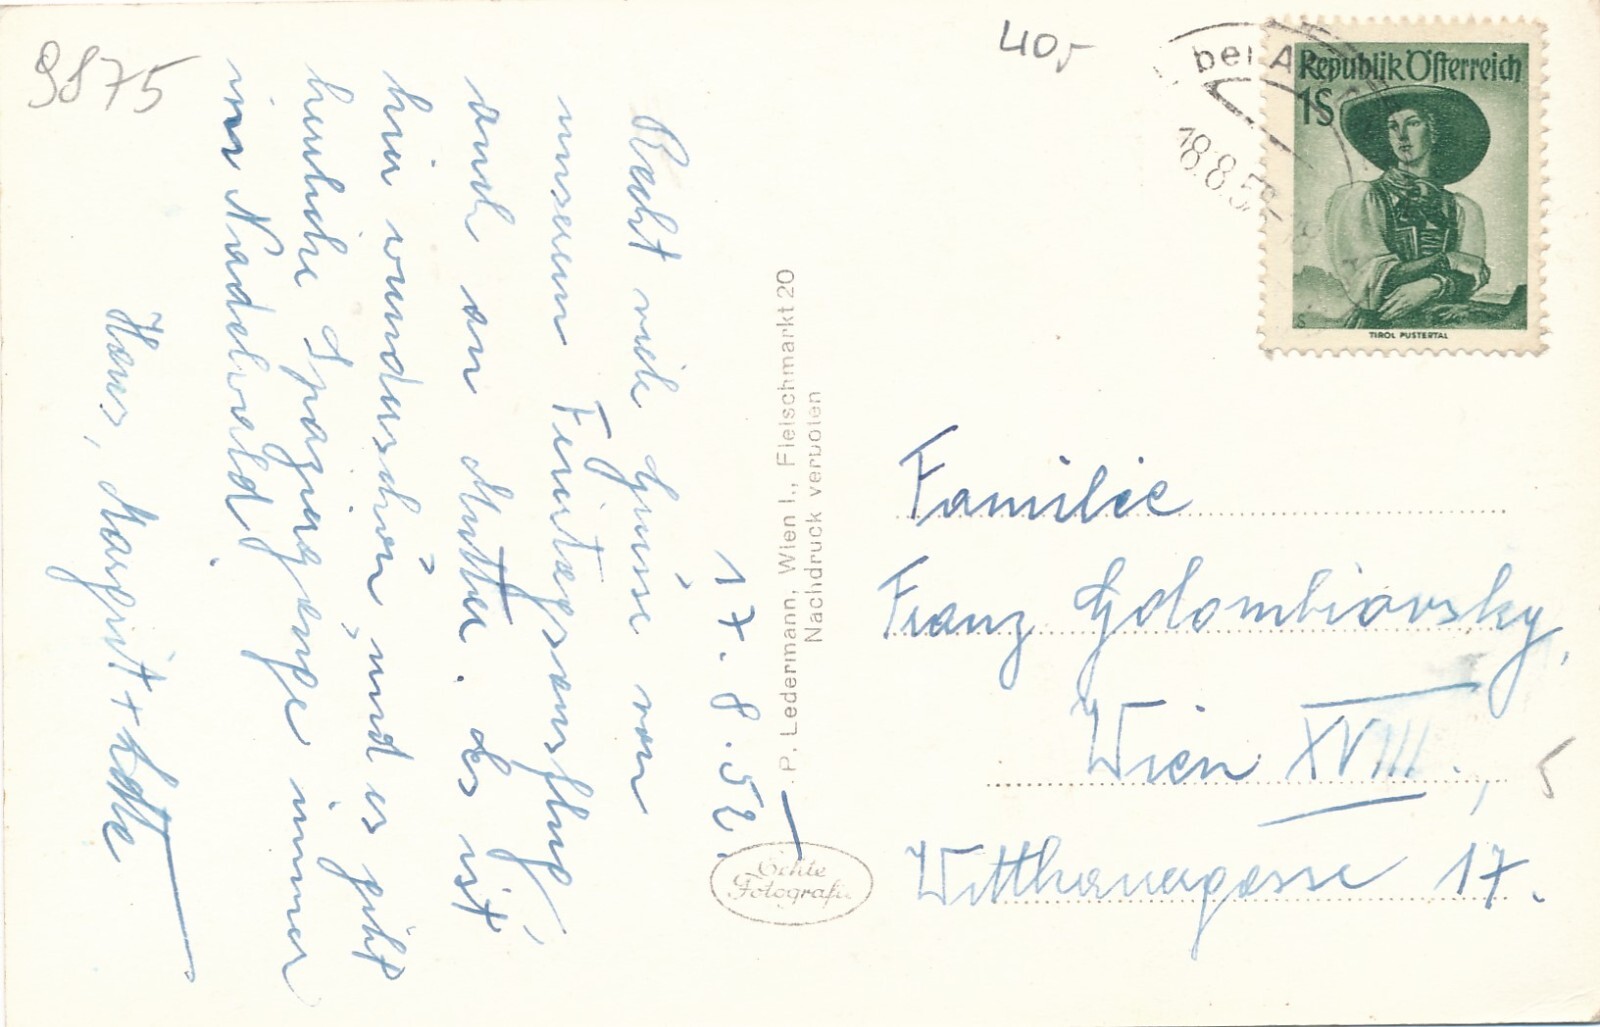 9875
40,-
bei A
18.8.52
Republik Österreich
1S
TIROL PUSTERTAL
17.8.52.
Recht viele Grüsse von
unserem Feiertagsausflug,
auch an Mutter. Es ist
hier wunderschön, und es gibt
herrliche Spaziergänge immer
im Nadelwald.
Hans, Margit + Lotte
P. Ledermann, Wien I., Fleischmarkt 20
Nachdruck verboten
Echte
Fotografie
Familie
Franz Golombiovsky,
Wien XVIII.,
Witthauergasse 17.